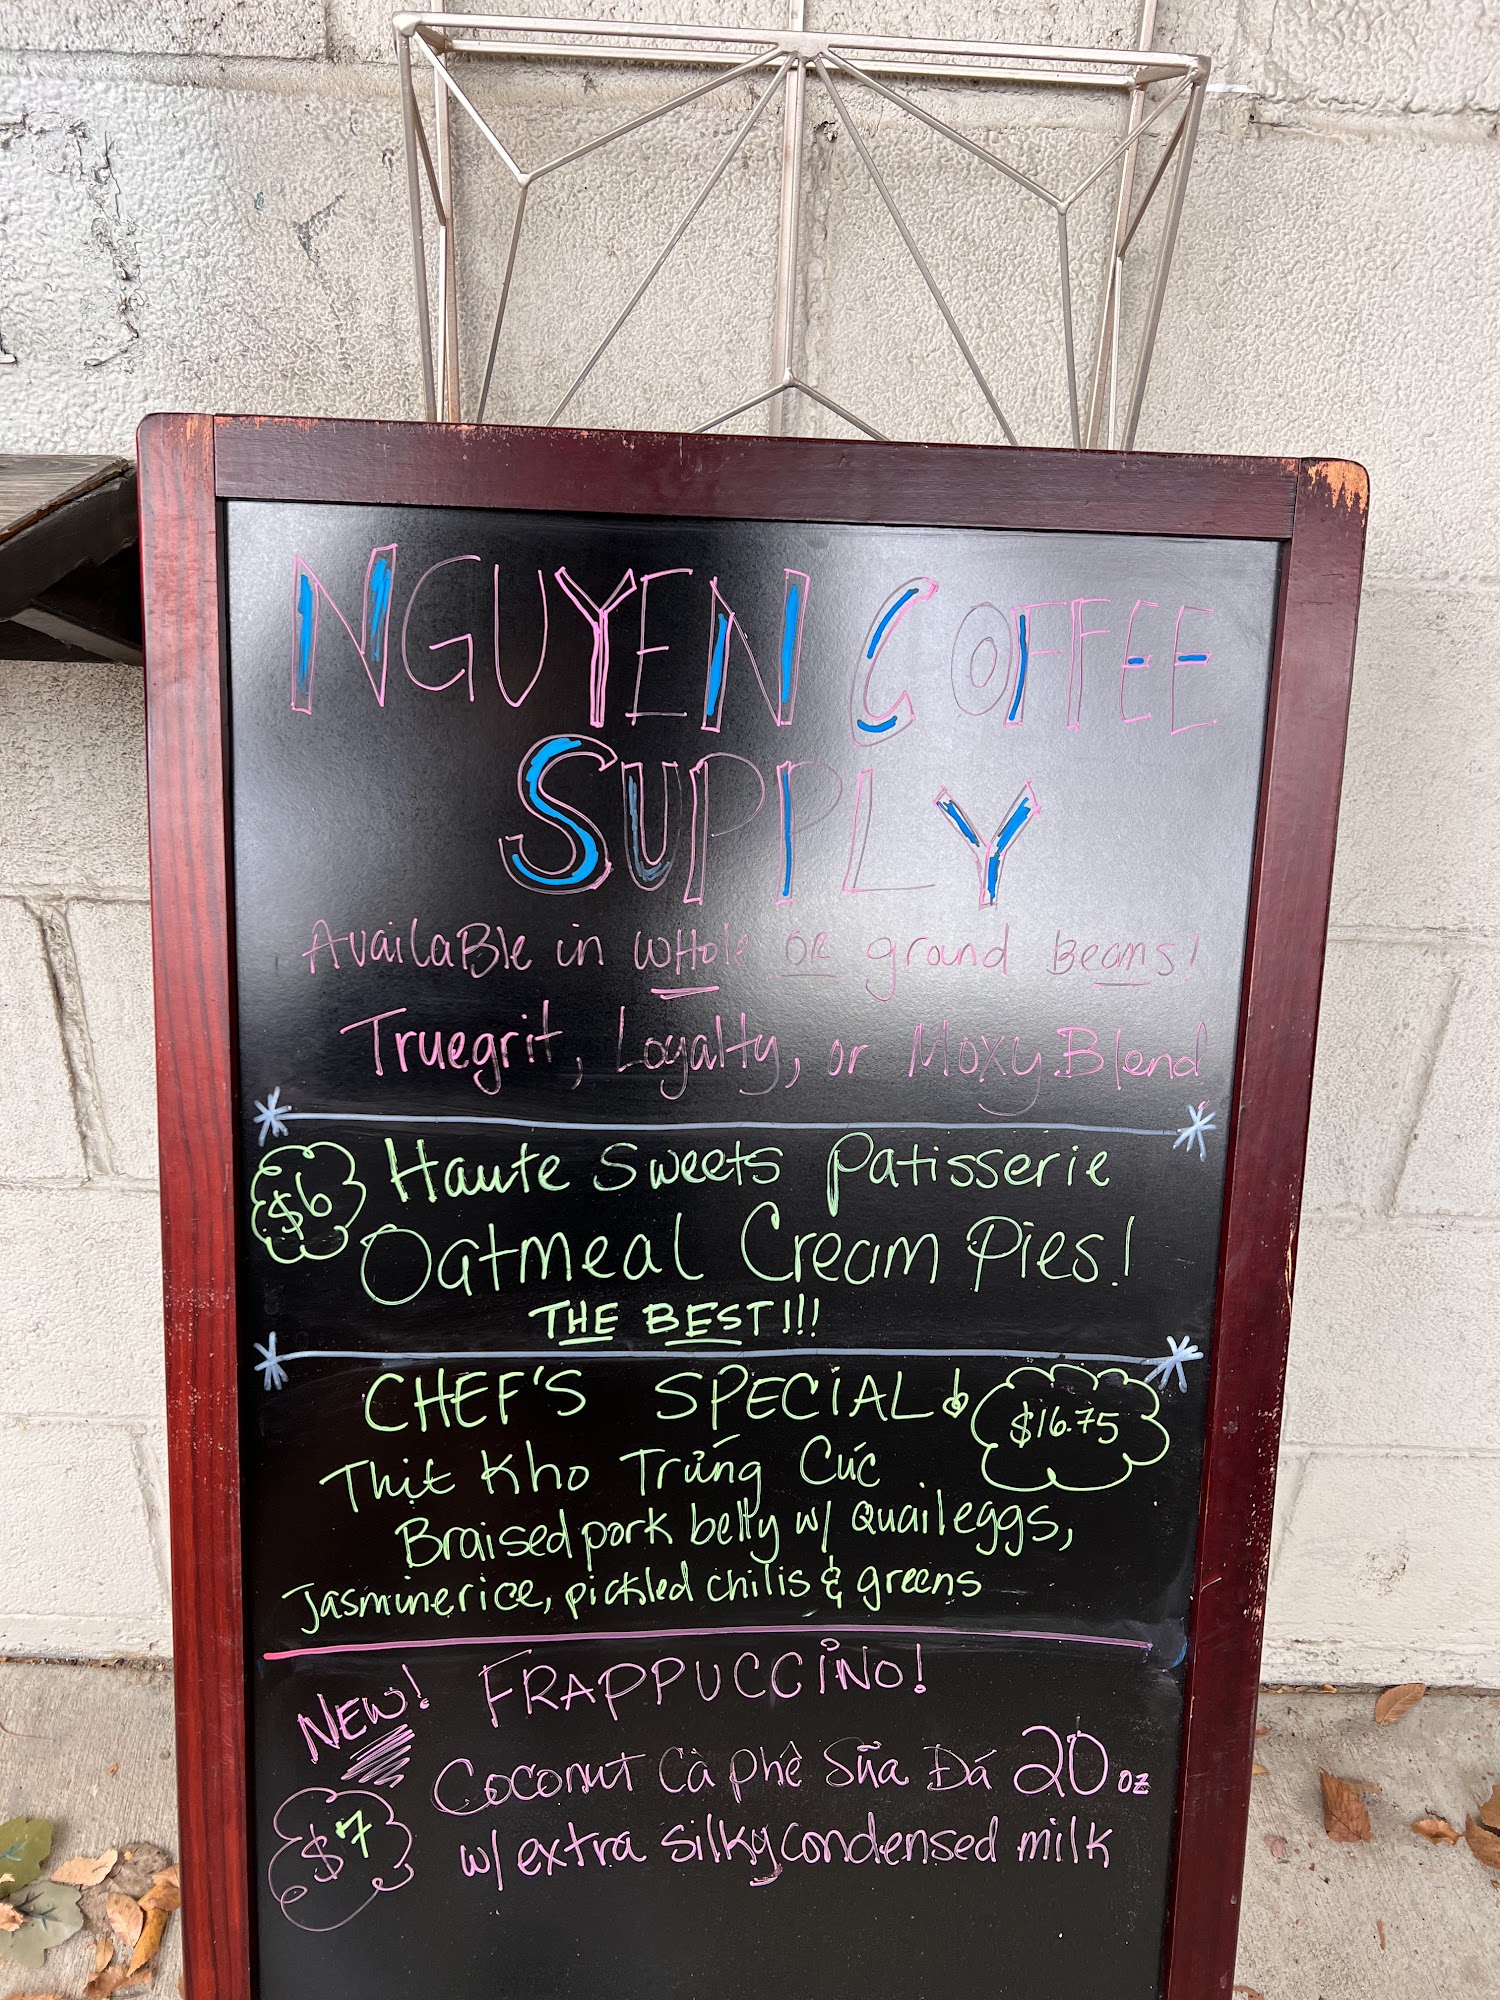 NGUYEN COFFEE
SUPPLY
AvailaBle in WHole OR ground Beans!
Truegrit, Loyalty, or Moxy Blend
$6
Haute Sweets Patisserie
Oatmeal Cream Pies!
THE BEST!!!
CHEF'S SPECIAL!
$16.75
Thịt Kho Trứng Cúc
Braised pork belly w/ Quail eggs,
Jasmine rice, pickled chilis & greens
NEW! FRAPPUCCINO!
Coconut Cà phê Sữa Đá 20 oz
$7
w/ extra silky condensed milk